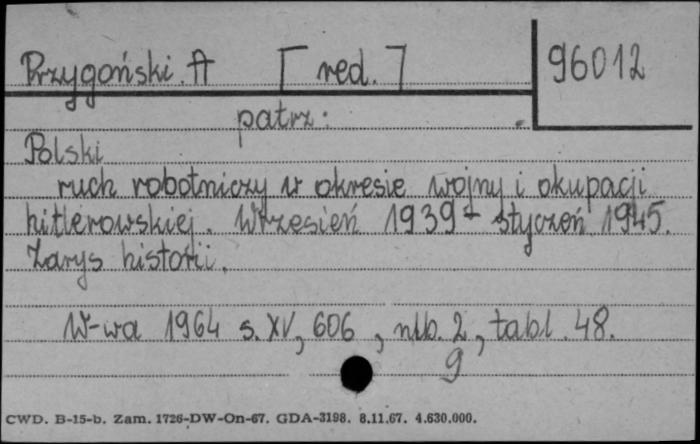 Przygoński A [red.] 96012
patrz:
Polski
ruch robotniczy w okresie wojny i okupacji
hitlerowskiej. Wrzesień 1939 - styczeń 1945.
Zarys historii.
W-wa 1964 s. XV, 606, nlb. 2, tabl. 48.
9
CWD. B-15-b. Zam. 1726-DW-On-67. GDA-3198. 8.11.67. 4.630.000.